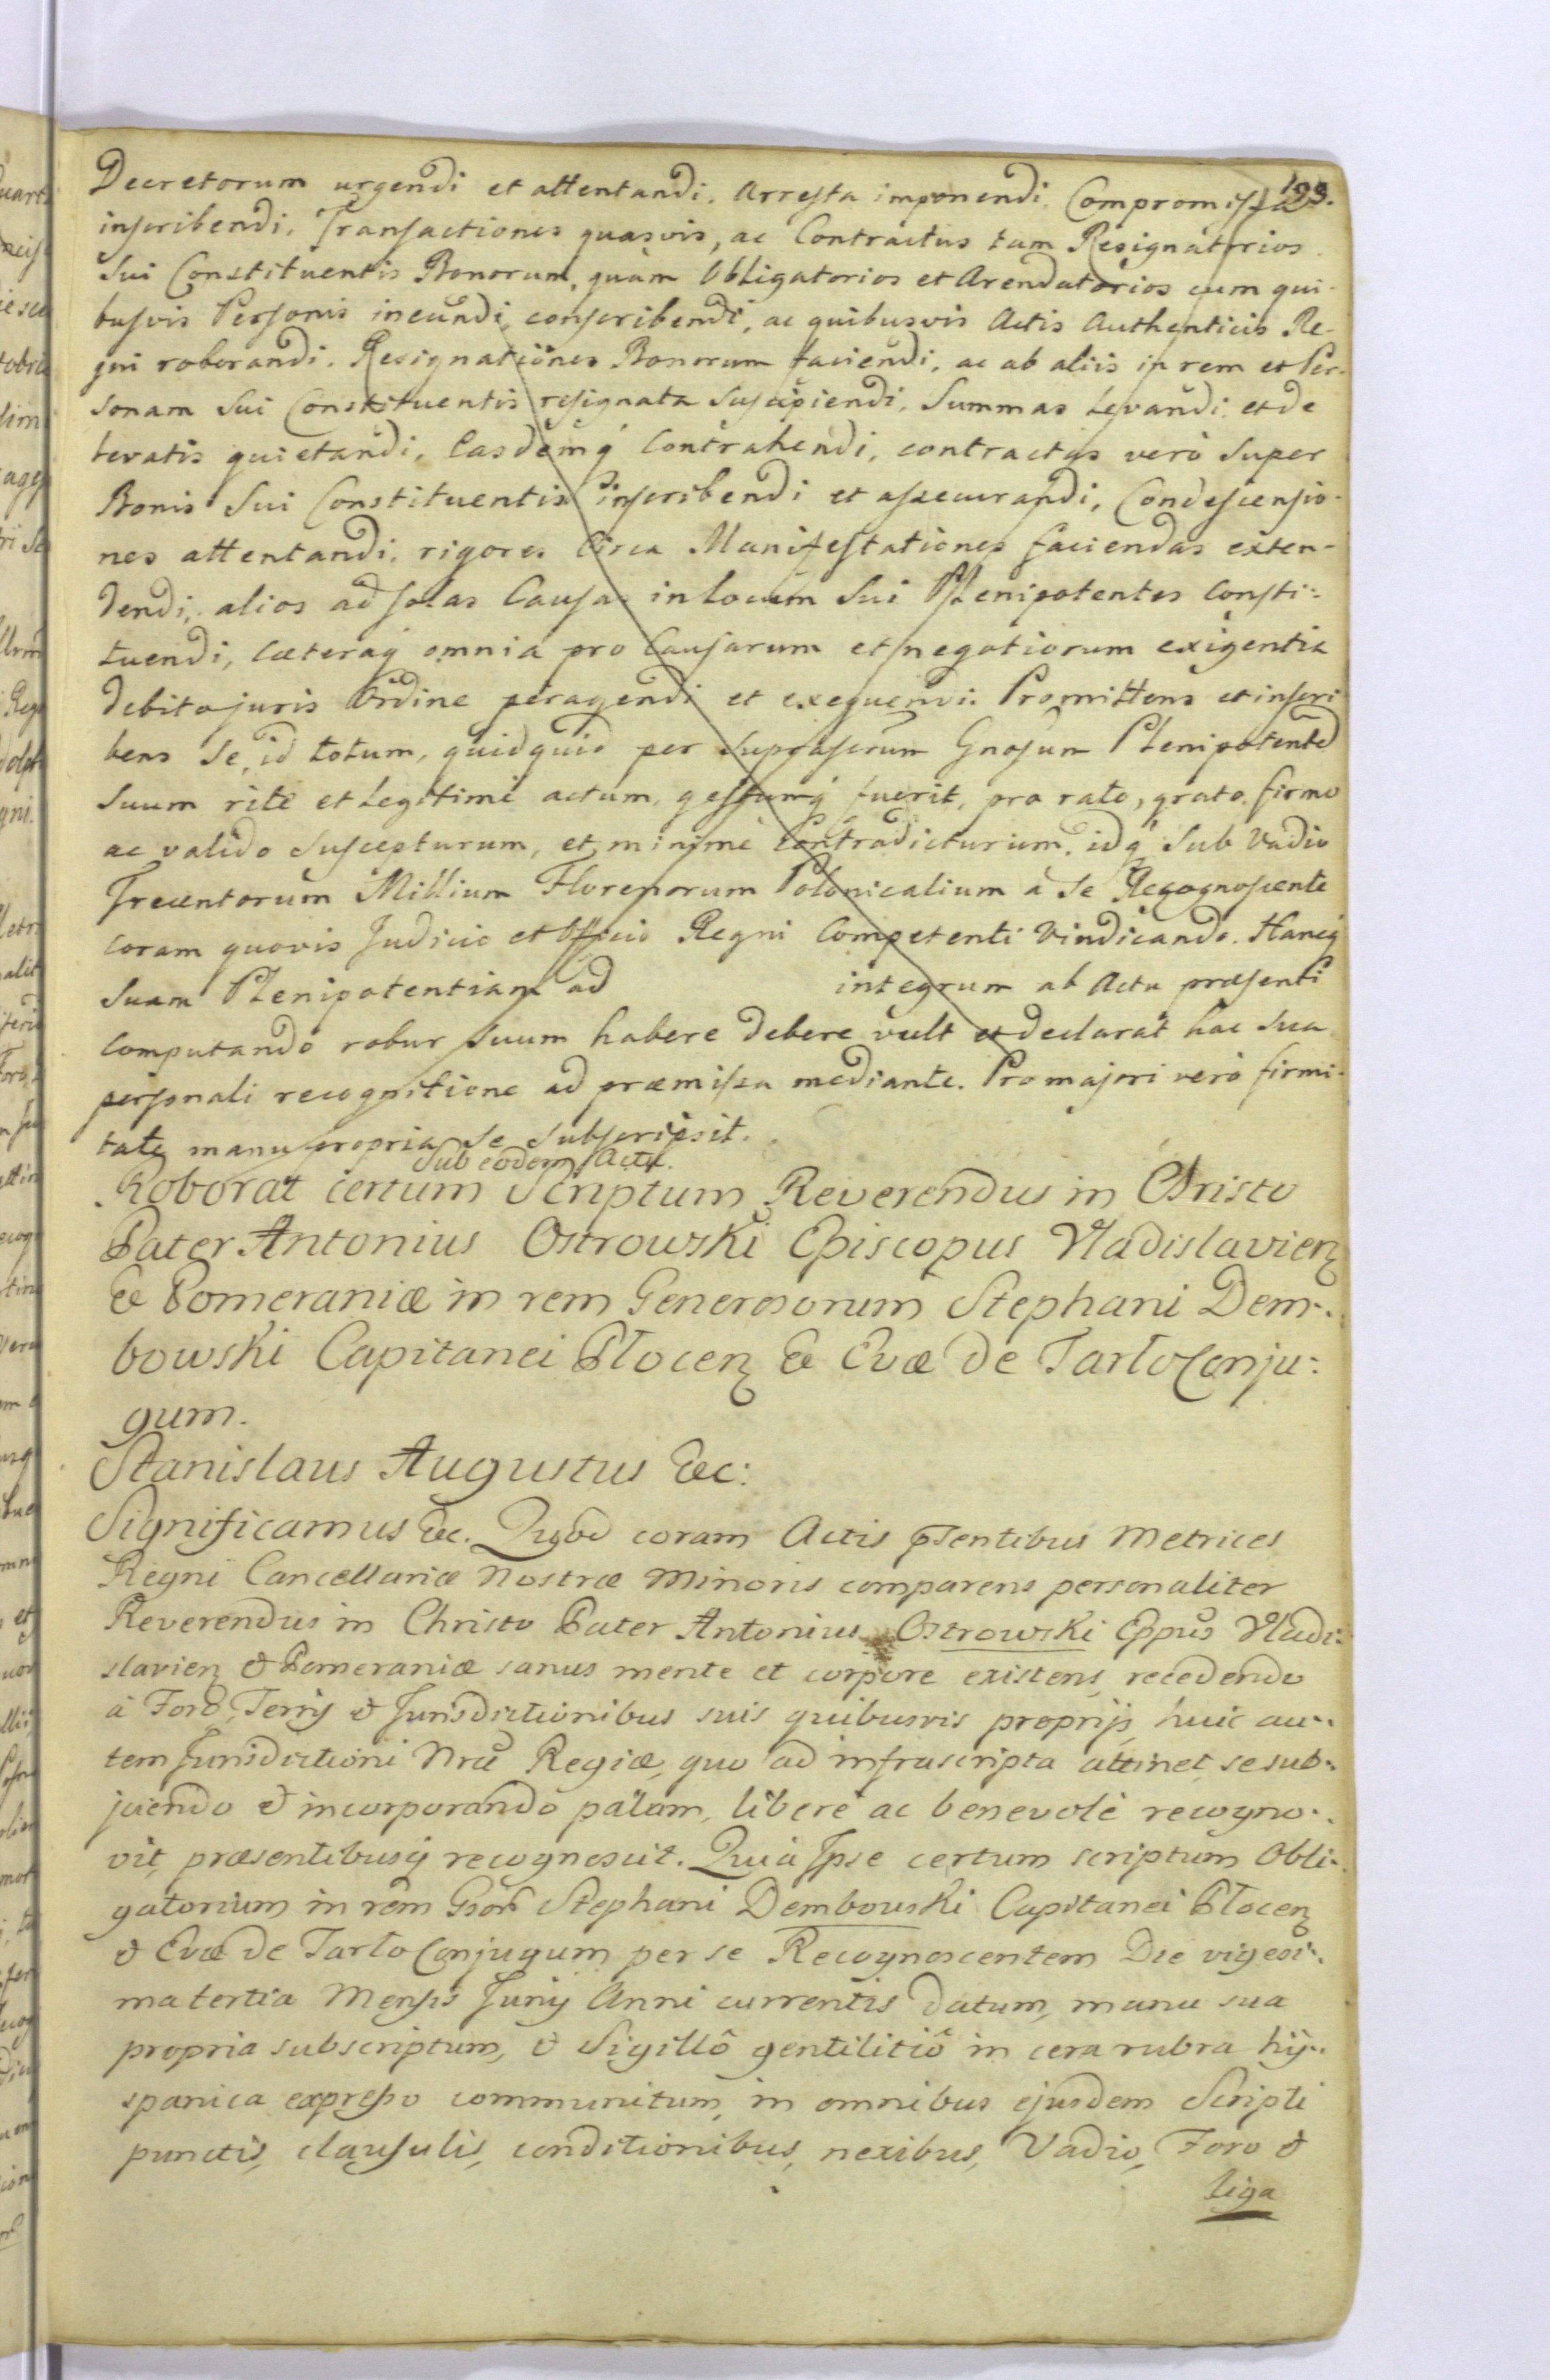 199.
Decretorum urgendi et attentandi. Arresta imponendi. Compromissa
inscribendi. Transactiones quasvis, ac Contractus tam Resignatorios
Sui Constituentis Bonorum, quàm Obligatorios et Arendatorios cum qui-
busvis Personis ineundi, conscribendi, ac quibusvis Actis Authenticis Re-
gni roborandi. Resignationes Bonorum faciendi, ac ab aliis in rem et Per-
sonam Sui Constituentis resignata suscipiendi. Summas levandi et de
levatis quietandi, Easdemq́ Contrahendi, contractas verò super
Bonis Sui Constituentis inscribendi et assecurandi, Condescensio-
nes attentandi, rigores Circa Manifestationes faciendas exten-
dendi, alios ad solas Causas in locum Sui Plenipotentes Consti-
tuendi, Cæteraq́ omnia pro Causarum et negotiorum exigentia
debito juris Ordine peragendi et exequendi. Promittens et inscri
bens Se, id totum, quidquid per suprascrum Gnosum Plenipotentē
Suum ritè et legitimè actum, gestumq́ fuerit, pro rato, grato, firmo
ac valido suscepturum, et minimè contradicturium, idq́ Sub Vadio
Trecentorum Millium Florenorum Polonicalium à Se Recognoscente
coram quovis Judicio et Officio Regni Competenti Vindicando. Hancq́
Suam Plenipotentiam ad integrum ab Actu præsenti
Computando robur suum habere debere vult et declarat hac sua
personali recognitione ad præmissa mediante. Pro majori verò firmi-
tate manu propria Se Subscripsit.
Sub eodem Actu.
Roborat certum Scriptum Reverendus in Christo
Pater Antonius Ostrowski Episcopus Vladislavien
& Pomeraniæ in rem Generosorum Stephani Dem-
bowski Capitanei Płocen & Evæ de Tarło Conju-
gum.
Stanislaus Augustus &c:
Significamus &c. Quod coram Actis pꝛsentibus Metrices
Regni Cancellariæ Nostræ Minoris comparens personaliter
Reverendus in Christo Pater Antonius Ostrowski Eppus Vladi-
slavien & Pomeraniæ sanus mente et corpore existens, recedendo
à Foro, Terris & Jurisdictionibus suis quibusvis proprijs, huic au-
tem Jurisdictioni Nræ Regiæ, quo ad infrascripta attinet, se sub-
jiciendo & incorporando palam, liberè ac benevolè recogno-
vit, præsentibusq́ recognoscit. Quia Ipse certum scriptum Obli-
gatorium in rem Gsor Stephani Dembowski Capitanei Płocen
& Evæ de Tarło Conjugum per se Recognoscentem Die vigesi-
ma tertia Mensis Junij Anni currentis datum, manu sua
propria subscriptum, & Sigillô gentilitiô in cera rubra hij-
spanica expresso communitum, in omnibus ejusdem Scripti
punctis, clausulis, conditionibus, nexibus, Vadio, Foro &
liga